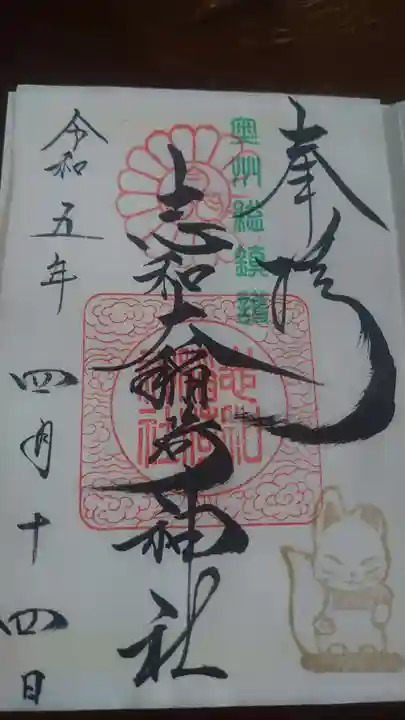 奉拝
奥州総鎮護
志和大稲荷神社
志和
稲荷
神社
令和五年
四月十四日